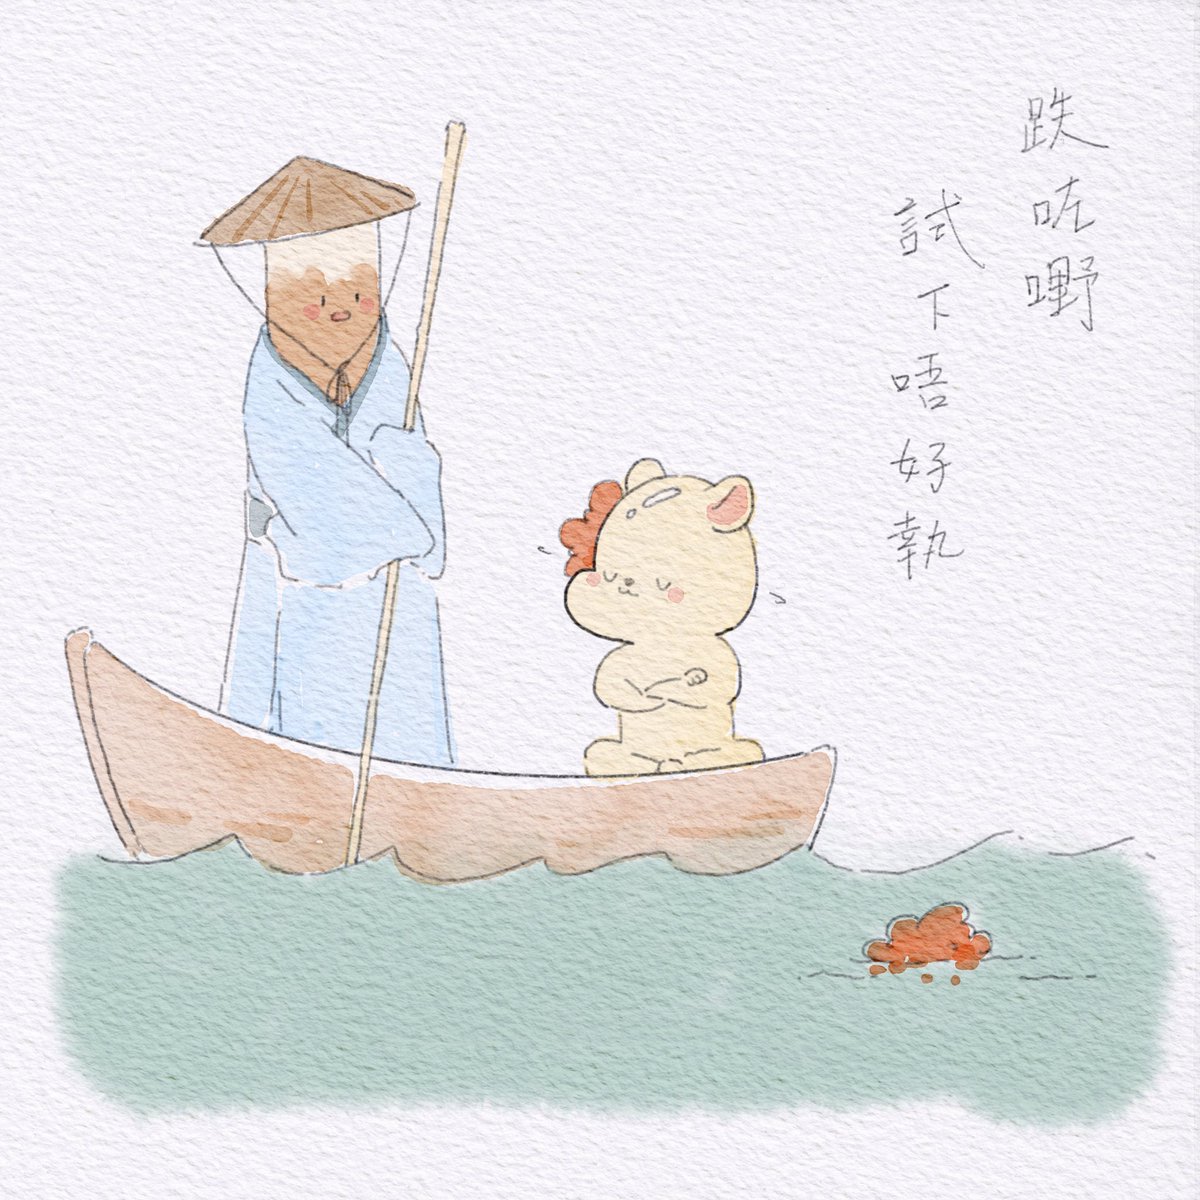 跌咗嘢
試下唔好執